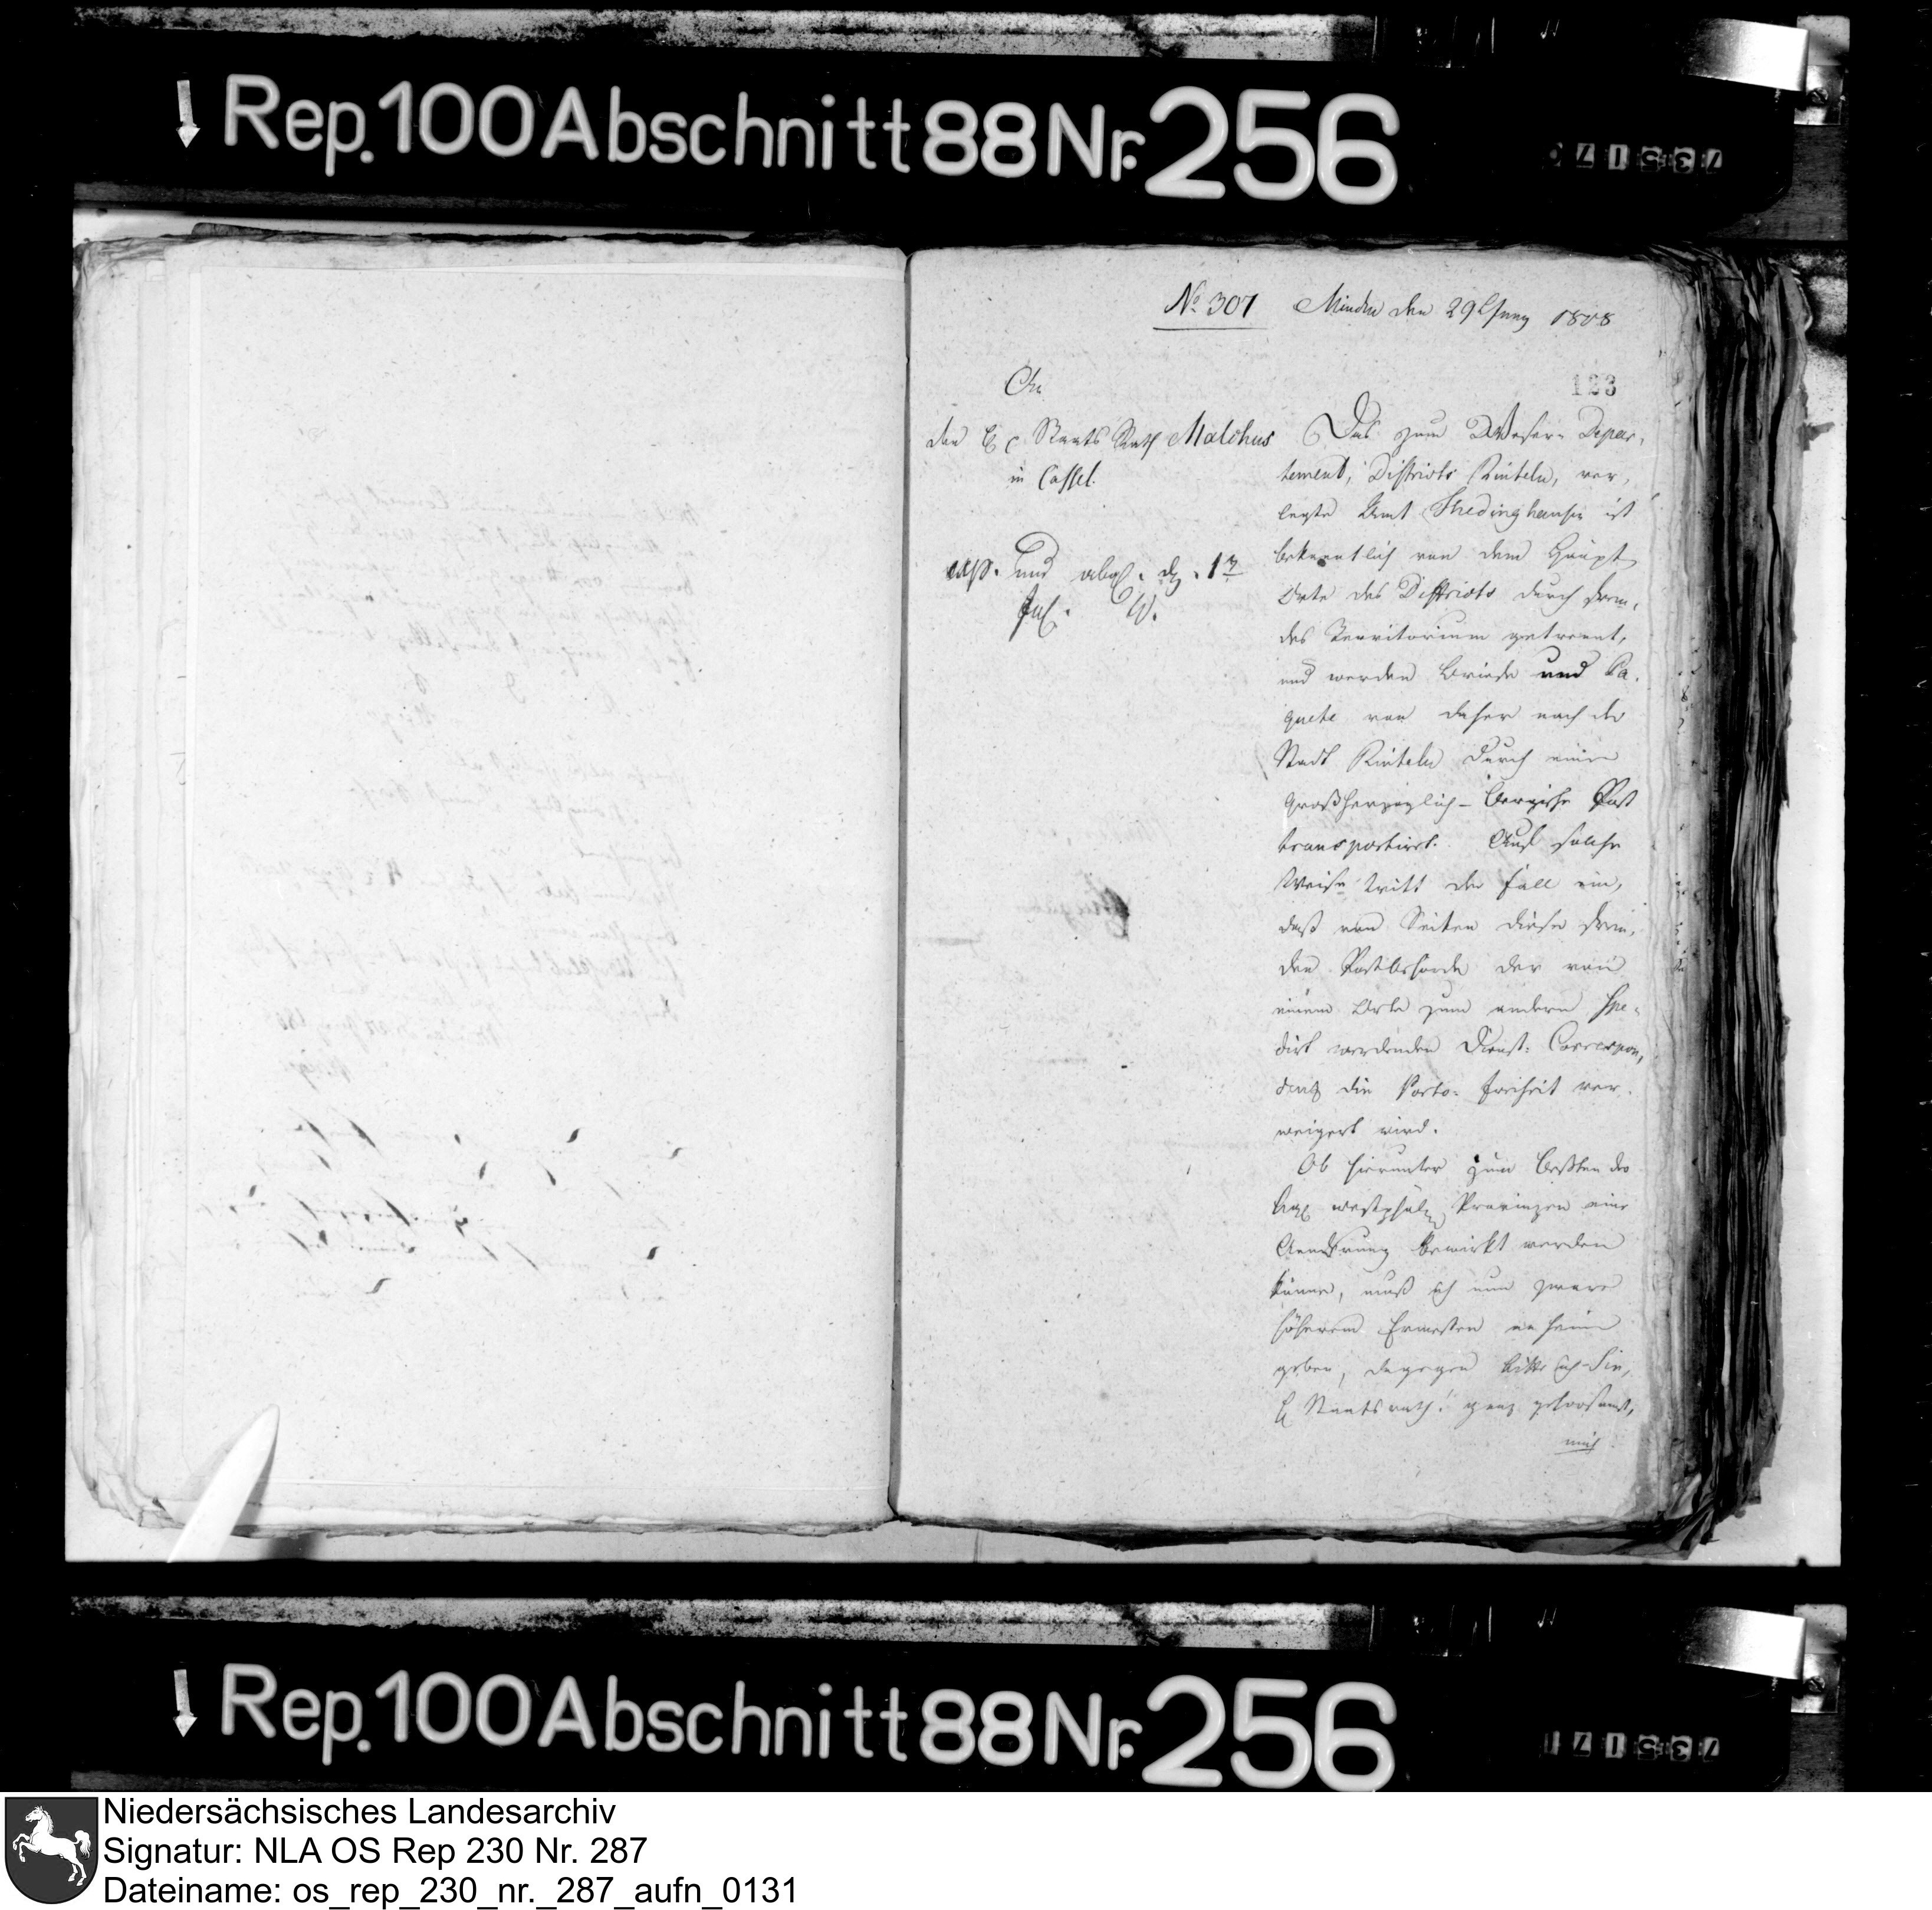 Rep. 100 Abschnitt 88 Nr. 256
No. 307 Minden den 29 Juny 1808
123
An
den Staats Rath Malchus
in Cassel.
exp. und abges. d. 1
Jul. W.
Das zum Weser- Depar-
tement, Districts Rinteln, ver-
legte Amt Thedinghausen ist
bekanntlich von dem Haupt
Orte des Districts durch frem-
des Territorium getrennt,
und werden Briefe und Pa-
quete von daher nach der
Stadt Rinteln durch eine
Großherzoglich- Bergische Post
transportirt. Auf solche
Weise tritt der Fall ein,
daß von Seiten dieser frem-
den Postbehörde der von
einem Orte zum andern spe-
dirt werdenden Dienst- Correspon-
denz die Porto- Freiheit ver-
weigert wird.
Ob hierunter zum Besten der
westphäl. Provinzen eine
Aenderung bewirkt werden
könne, muß ich nun zwar
höherem Ermessen anheim
geben, dagegen bitte ich Sie,
H Staatsrath! ganz gehorsamst,
mich
Rep. 100 Abschnitt 88 Nr. 256
Niedersächsisches Landesarchiv
Signatur: NLA OS Rep 230 Nr. 287
Dateiname: os_rep_230_nr._287_aufn_0131